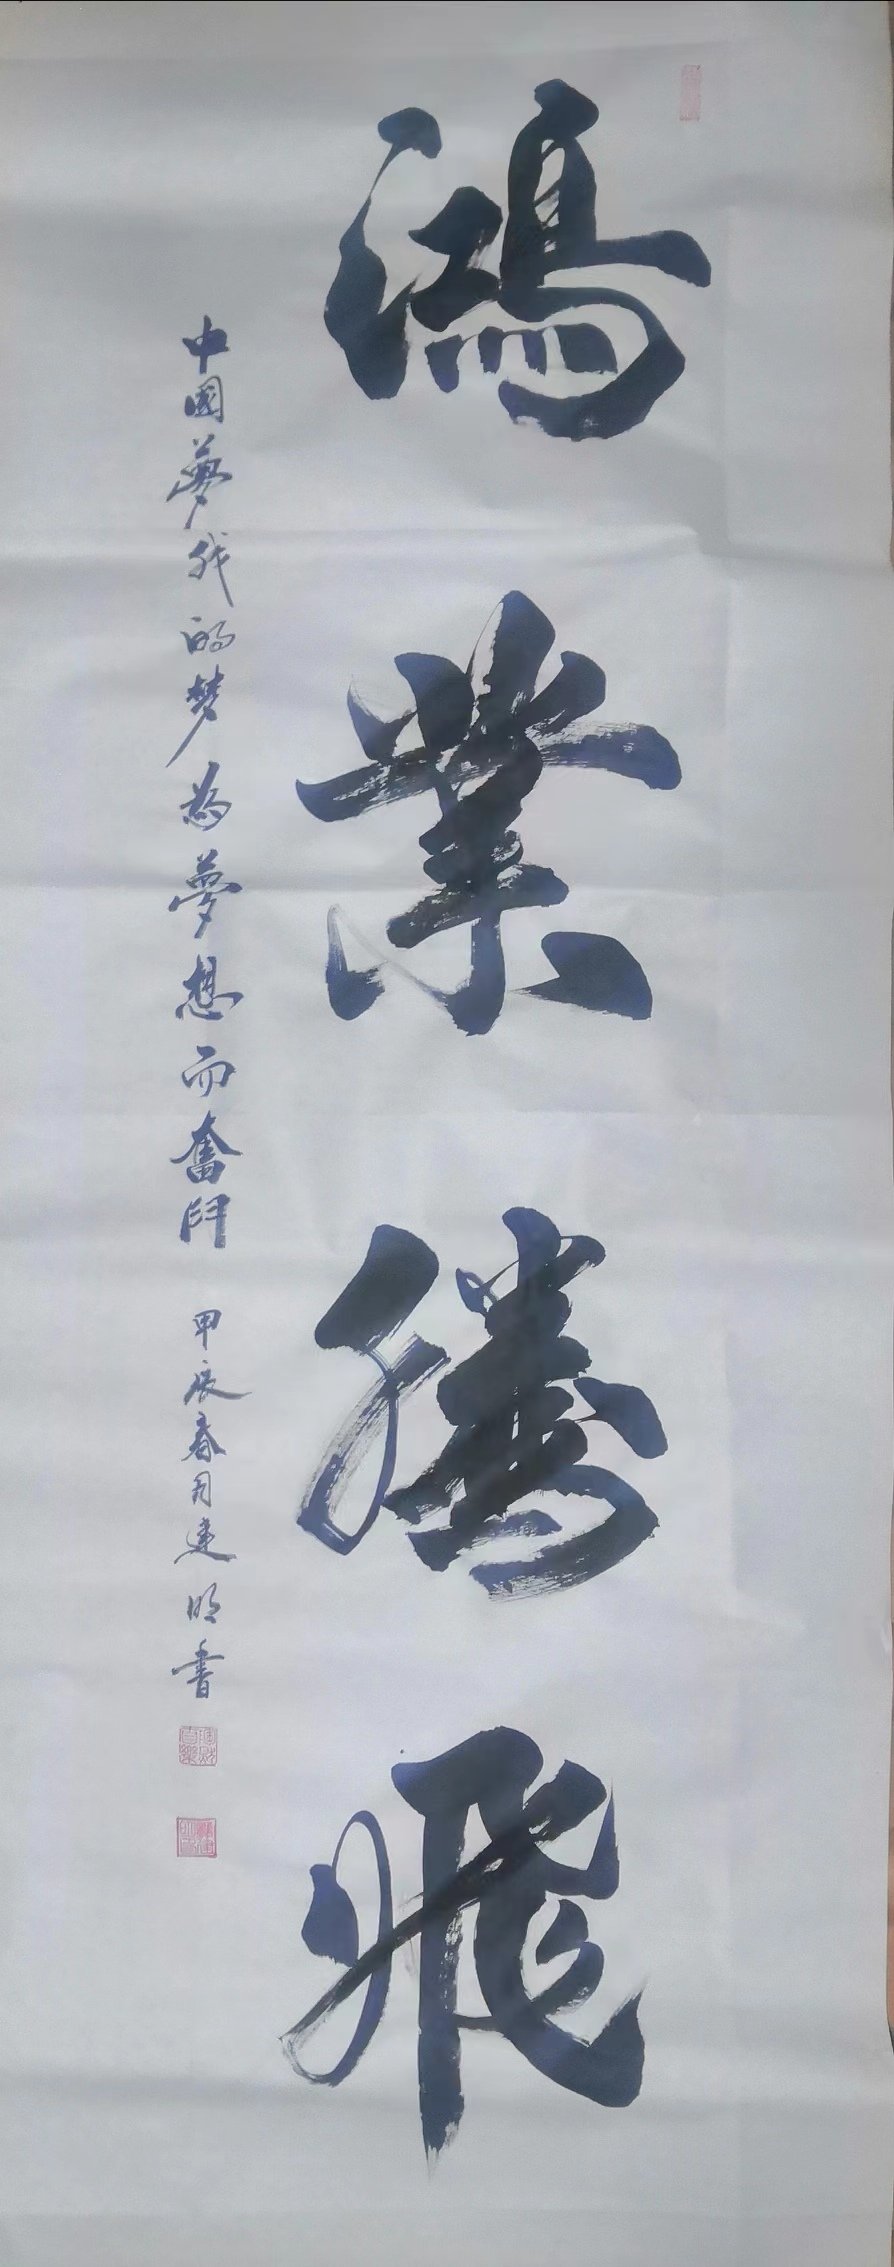 鴻業騰飛
中國夢我的梦為夢想而奮鬥 甲辰春月建明書